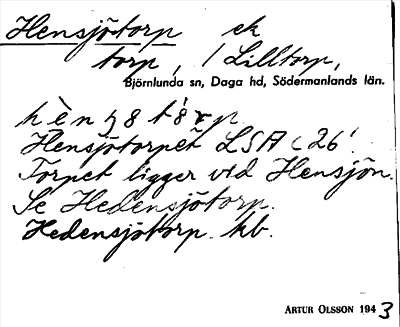 Hensjötorp ek
torp, / Lilltorp,
Björnlunda sn, Daga hd, Södermanlands län.
Hensjötorpet LSA c 26'.
Torpet ligger vid Hensjön.
Se Hedensjötorp.
Hedensjötorp. kb.
ARTUR OLSSON 1943